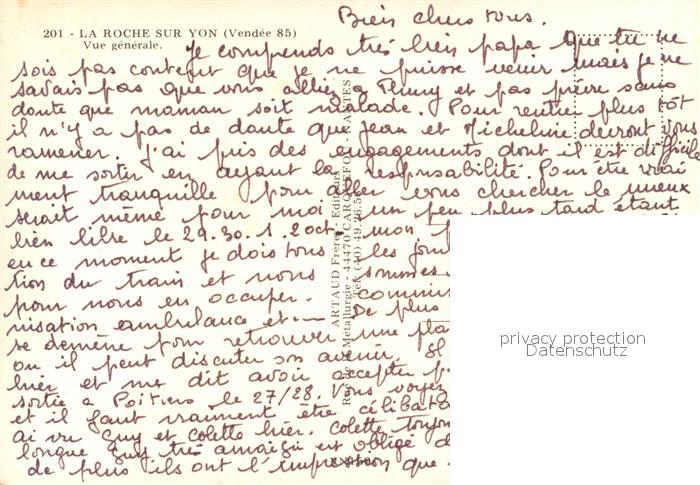 Bien chers tous.
201 - LA ROCHE SUR YON (Vendée 85)
Vue générale.
Je comprends très bien papa que tu ne
sois pas content que je ne puisse venir mais je ne
savais pas que vous alliez a Pluny et pas prévu sans
doute que maman soit malade. Pour rentrer plus tôt
il n'y a pas de doute que Jean et Micheline devront vous
ramener. J'ai pris des engagements dont il est difficile
de me sortir en ayant la responsabilité. Pour être vrai
ment tranquille pour aller vous chercher le mieux
serait même pour moi un peu plus tard étant
bien libre le 29.30.1.2 oct. mon
en ce moment je dois tous les jou
tion du train et nous sommes
pour nous en occuper. commis
nisation ambulance et De plus
se demène pour retrouver une pla
ou il peut discuter son avenir. Il
hier et m'a dit avoir accepter p
sortie a Poitiers le 27/28. Vous voyez
et il faut vraiment être célibat
ai vu Guy et Colette hier. Colette toujou
longue Guy très amaigri est obligé d
de plus ils ont l'impression que
ARTAUD Frères - Editeurs
Rue de la Métallurgie - 44470 CARQUEFOU-NANTES
Tél. (40) 49.26.5
privacy protection
Datenschutz